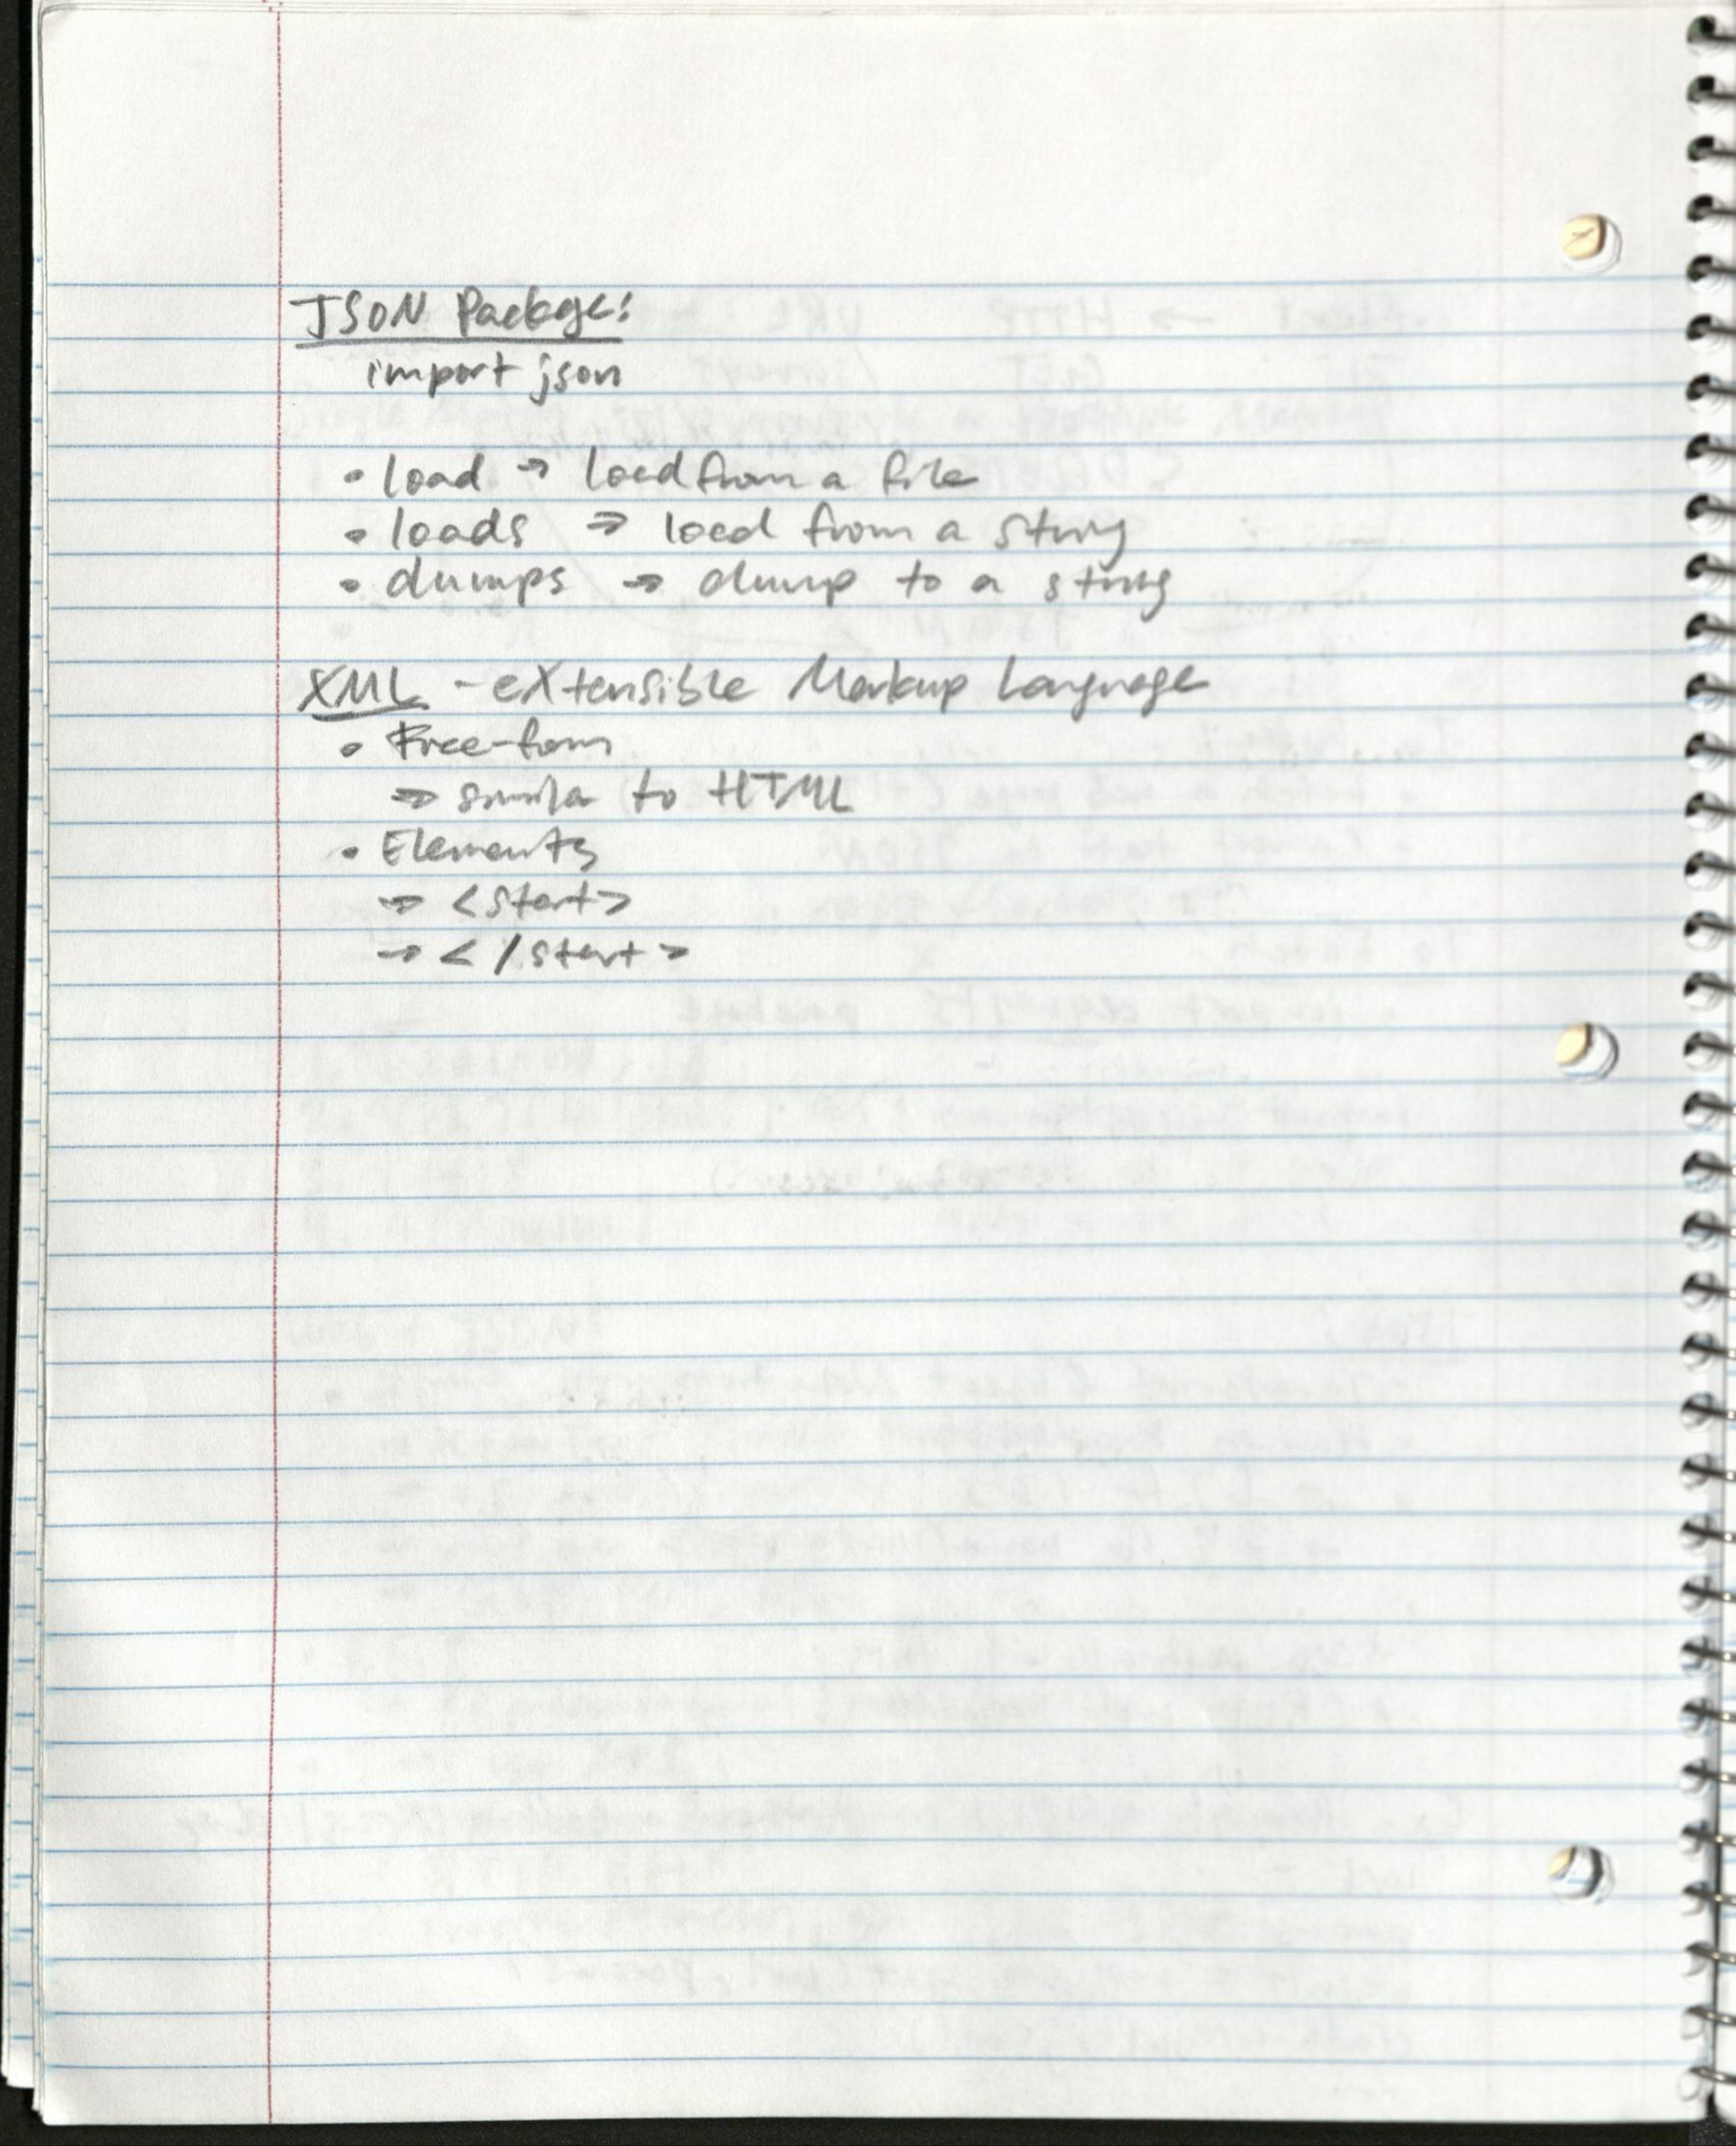 JSON Package:
import json
• load → load from a file
• loads → load from a string
• dumps → dump to a string
XML - eXtensible Markup Language
• Free-form
→ similar to HTML
• Elements
→ <start>
→ </start>